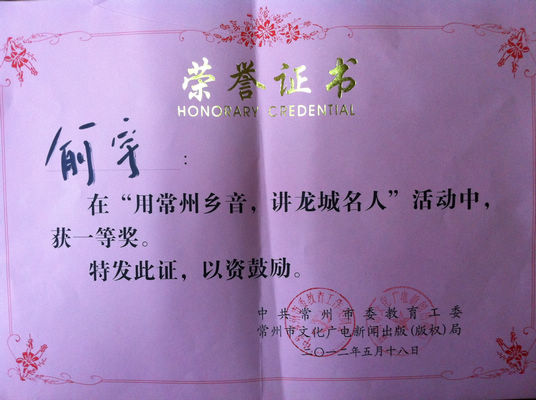 荣誉证书
HONORARY CREDENTIAL
俞宇：
在“用常州乡音，讲龙城名人”活动中，
获一等奖。
特发此证，以资鼓励。
中共常州市委教育工委
常州市文化广电新闻出版(版权)局
二〇一二年五月十八日